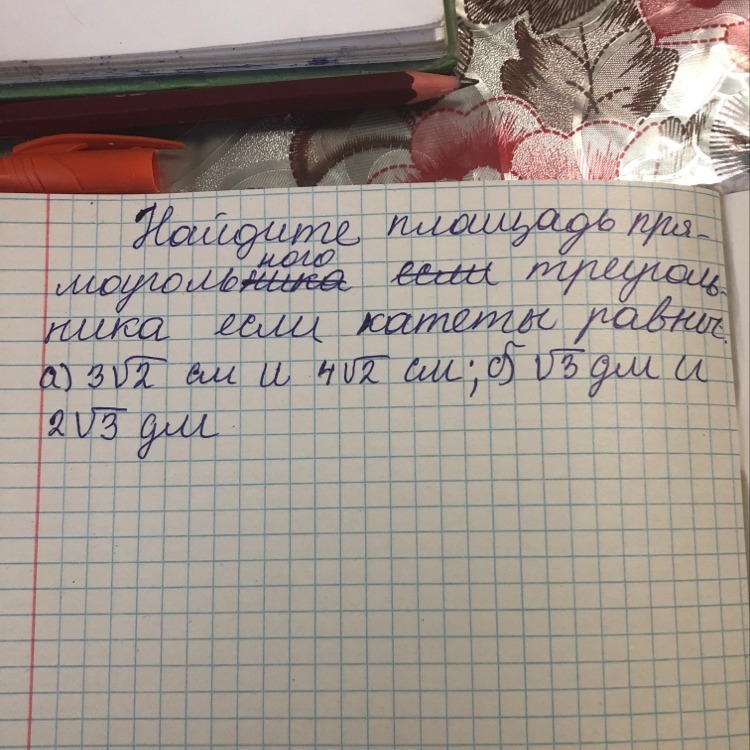 Найдите площадь пря-
моугольного треуголь-
ника если катеты равны:
а) 3√2 см и 4√2 см; б √3 дм и
2√3 дм